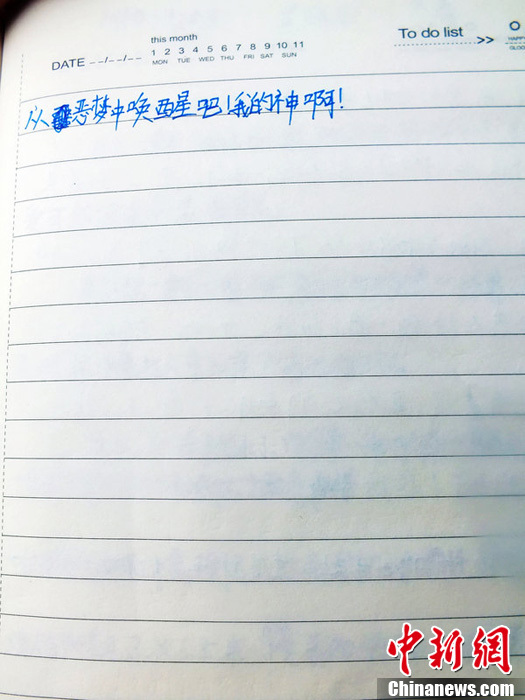 this month
To do list >>
DATE --/--/-- 1 2 3 4 5 6 7 8 9 10 11
MON TUE WED THU FRI SAT SUN
从恶梦中唤醒吧!我的神啊!
中新网
Chinanews.com